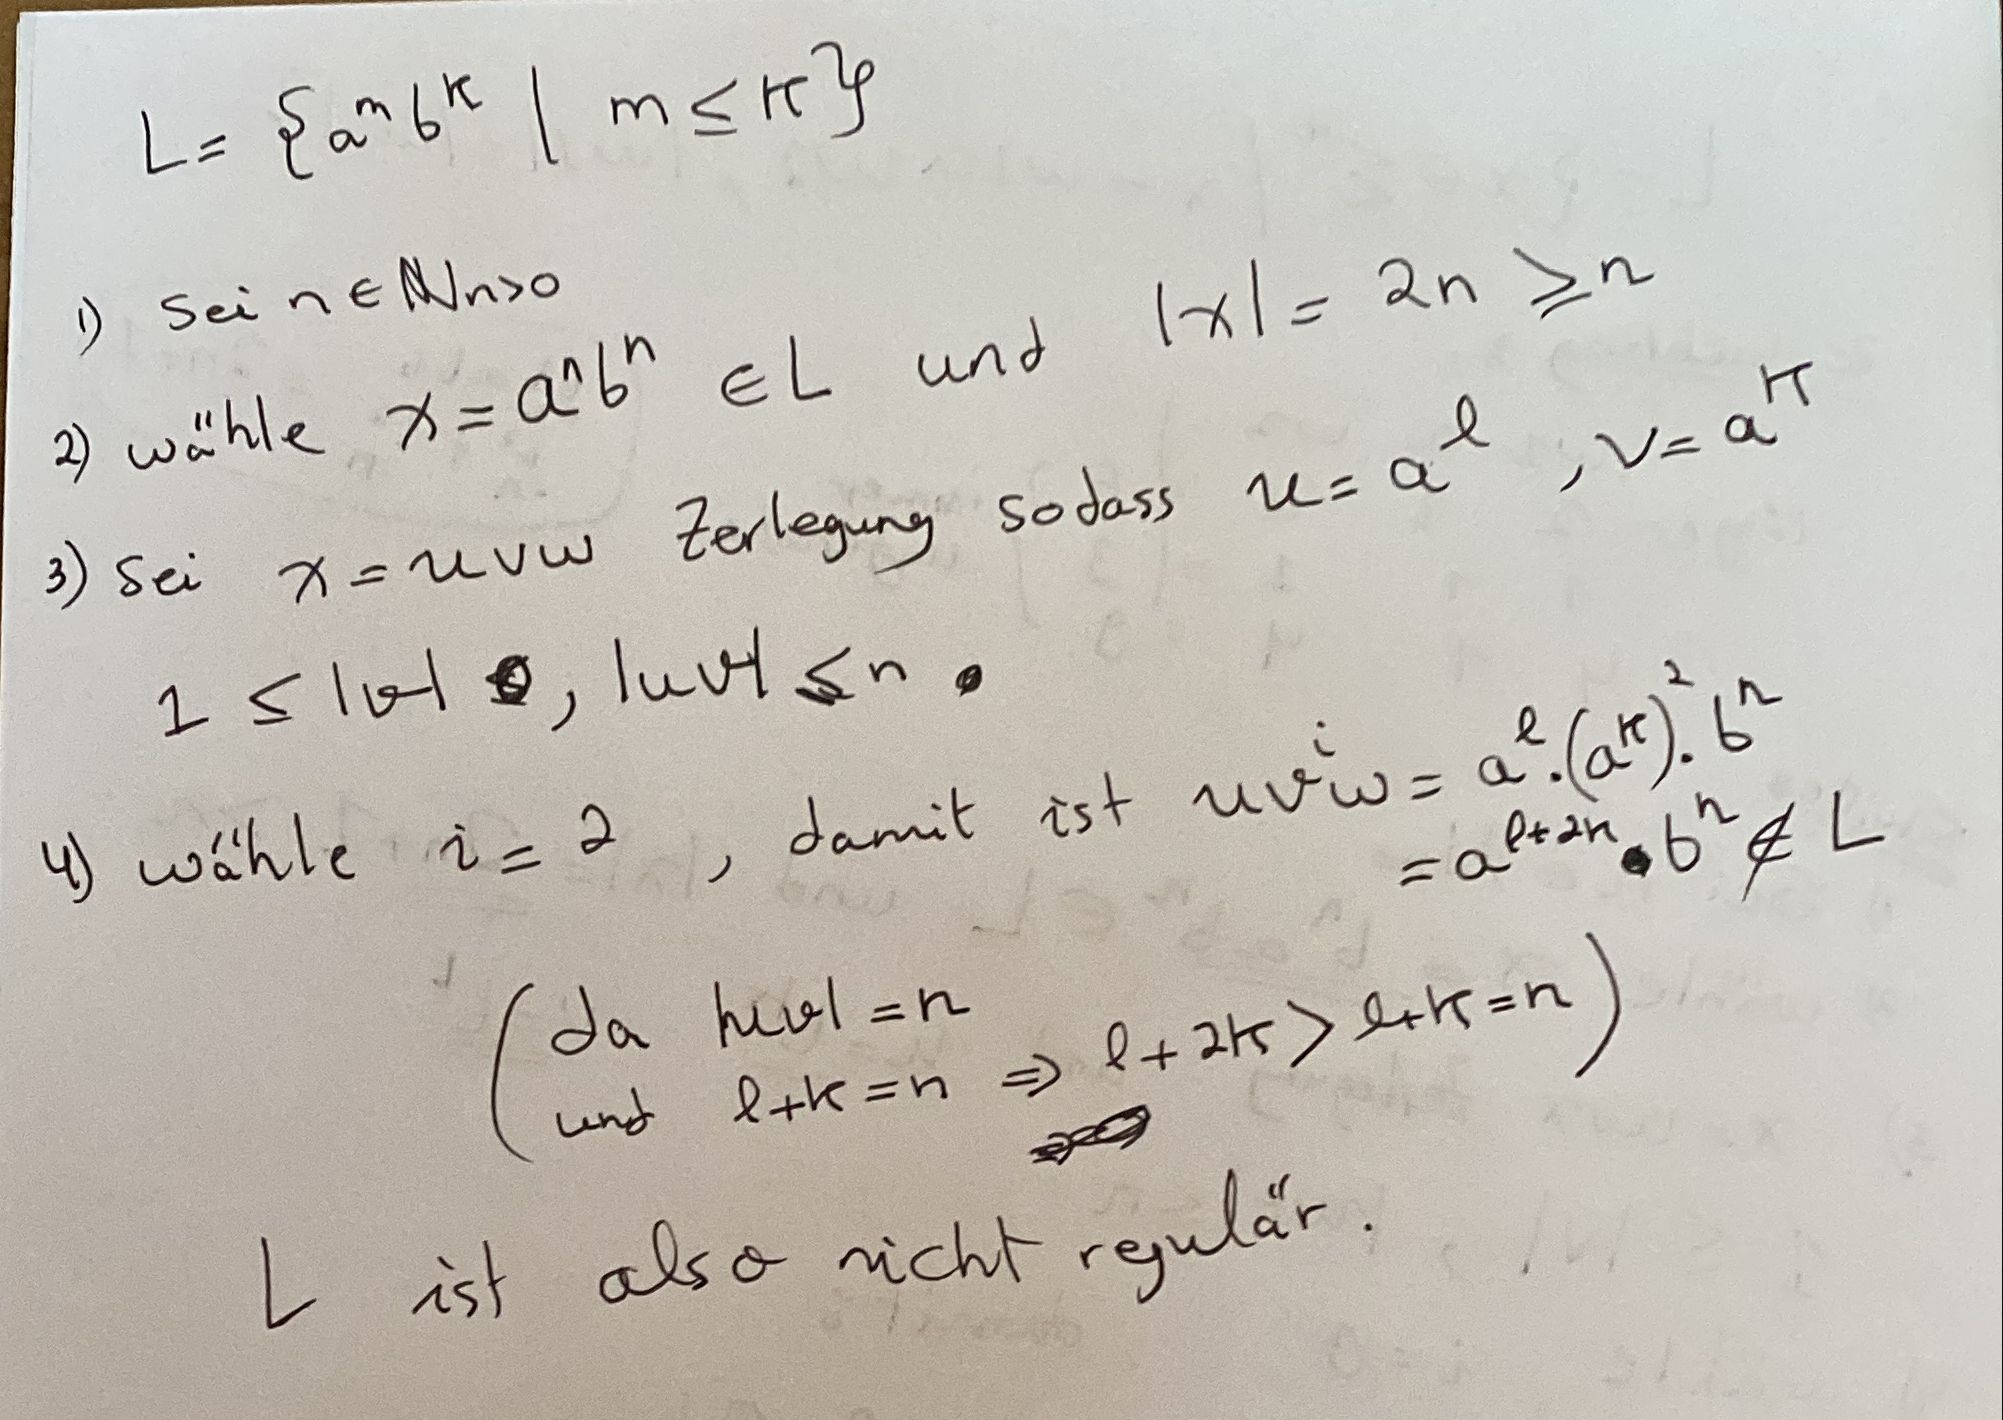 L = {aᵐbᵏ | m ≤ k}
1) Sei n ∈ ℕ n>0
2) wähle x = aⁿbⁿ ∈ L und |x| = 2n ≥ n
3) Sei x = uvw Zerlegung sodass u = aˡ, v = aᵏ
1 ≤ |v| , |uv| ≤ n .
4) wähle i = 2, damit ist uvⁱw = aˡ·(aᵏ)²·bⁿ
= aˡ⁺²ᵏ · bⁿ ∉ L
(da |uv| = n
und l+k = n ⇒ l+2k > l+k = n)
L ist also nicht regulär.